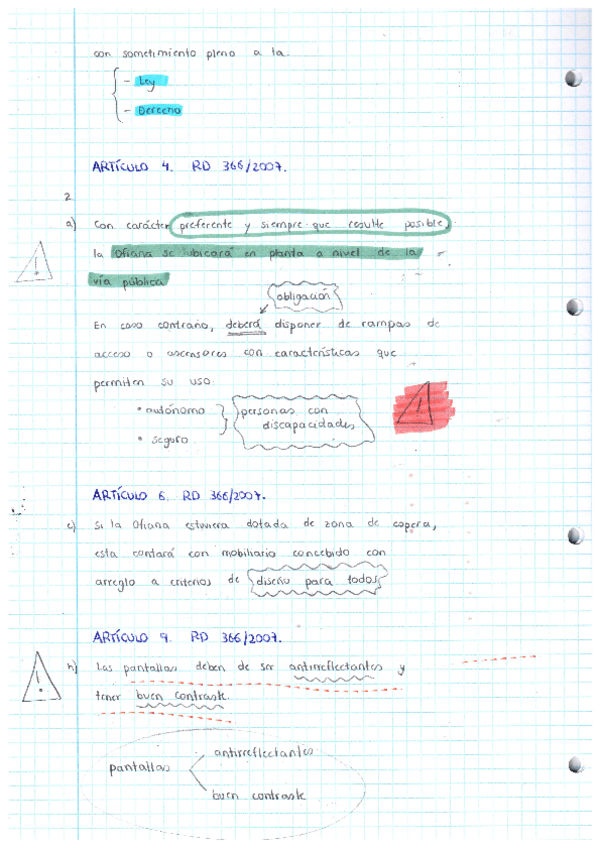 con sometimiento pleno a la.
- Ley
- Derecho
ARTÍCULO 4. RD 366/2007.
2
a) Con carácter preferente y siempre que resulte posible,
la Oficina se ubicará en planta a nivel de la
vía pública
obligación
En caso contrario, deberá disponer de rampas de
acceso o ascensores con características que
permiten su uso:
• autónomo
personas con
discapacidades
• seguro.
ARTÍCULO 6. RD 366/2007.
c) Si la Oficina estuviera dotada de zona de espera,
esta contará con mobiliario concebido con
arreglo a criterios de diseño para todos
ARTÍCULO 9. RD 366/2007.
h) Las pantallas deben de ser antirreflectantes y
tener buen contraste.
antirreflectantes
pantallas
buen contraste